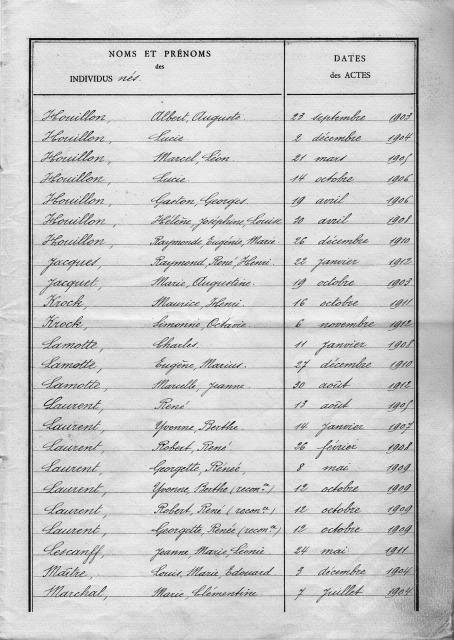 NOMS ET PRÉNOMS
des
INDIVIDUS nés.
DATES
des ACTES
Houillon, Albert, Auguste. 23 septembre 1903
Houillon, Lucie 2 décembre 1904
Houillon, Marcel, Léon 21 mars 1905
Houillon, Lucie 14 octobre 1906
Houillon, Gaston, Georges. 19 avril 1906
Houillon, Hélène, Joséphine, Louise 20 avril 1908
Houillon, Raymonde, Eugénie, Marie 26 décembre 1910
Jacques, Raymond, René, Henri 22 janvier 1912
Jacquet, Marie, Augustine. 19 octobre 1903
Krock, Maurice, Henri 16 octobre 1911
Krock, Simonne, Octavie 6 novembre 1912
Lamotte, Charles. 11 janvier 1908
Lamotte, Eugène, Marius. 27 décembre 1910
Lamotte, Marcelle, Jeanne 30 août 1912
Laurent, René 13 août 1905
Laurent, Yvonne, Berthe 14 janvier 1907
Laurent, Robert, René 26 février 1908
Laurent, Georgette, Renée 8 mai 1909
Laurent, Yvonne, Berthe (recon.ce) 12 octobre 1909
Laurent, Robert, René (recon.ce) 12 octobre 1909
Laurent, Georgette, Renée (recon.ce) 12 octobre 1909
Lescanff, Jeanne, Marie, Léonie 24 mai 1911
Maître, Louis, Marie, Edouard 3 décembre 1904
Marchal, Marie, Clémentine 7 juillet 1904